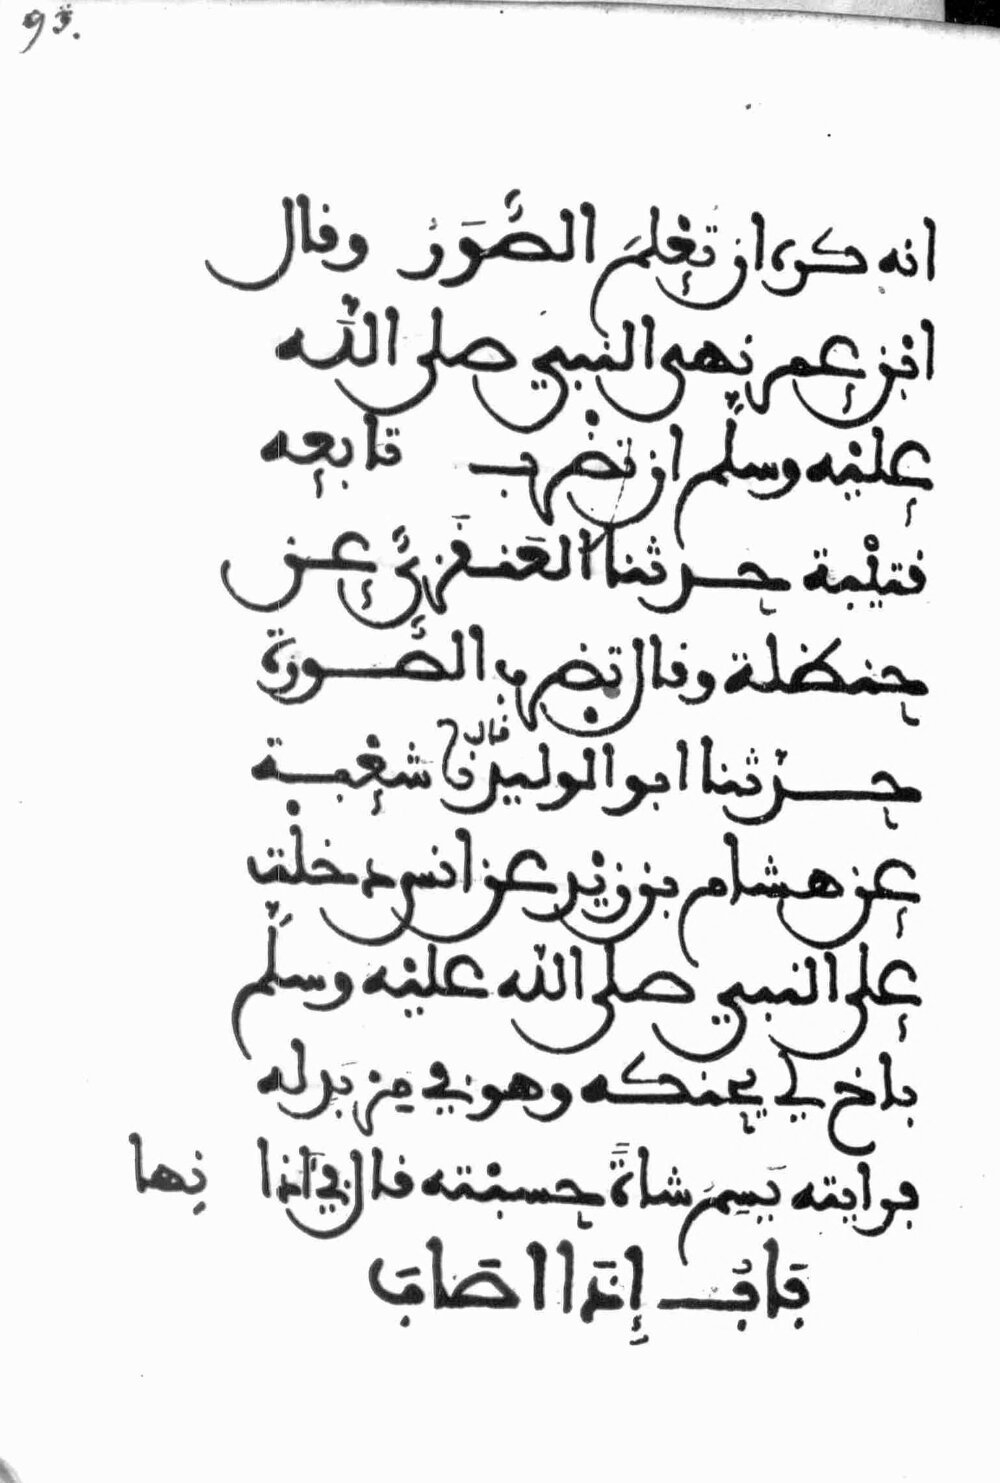 93.
انه كره ان تعلم الصور وقال
ابن عمر نهى النبي صلى الله
عليه وسلم ان تضرب تابعه
قتيبة حدثنا العنقزي عن
حنظلة وقال تضرب الصورة
حدثنا ابو الوليد قال نا شعبة
عن هشام بن زيد عن انس دخلت
على النبي صلى الله عليه وسلم
باخ لي يحنكه وهو في مربد له
فرايته يسم شاة حسبته قال في آذانها
باب إذا اصاب